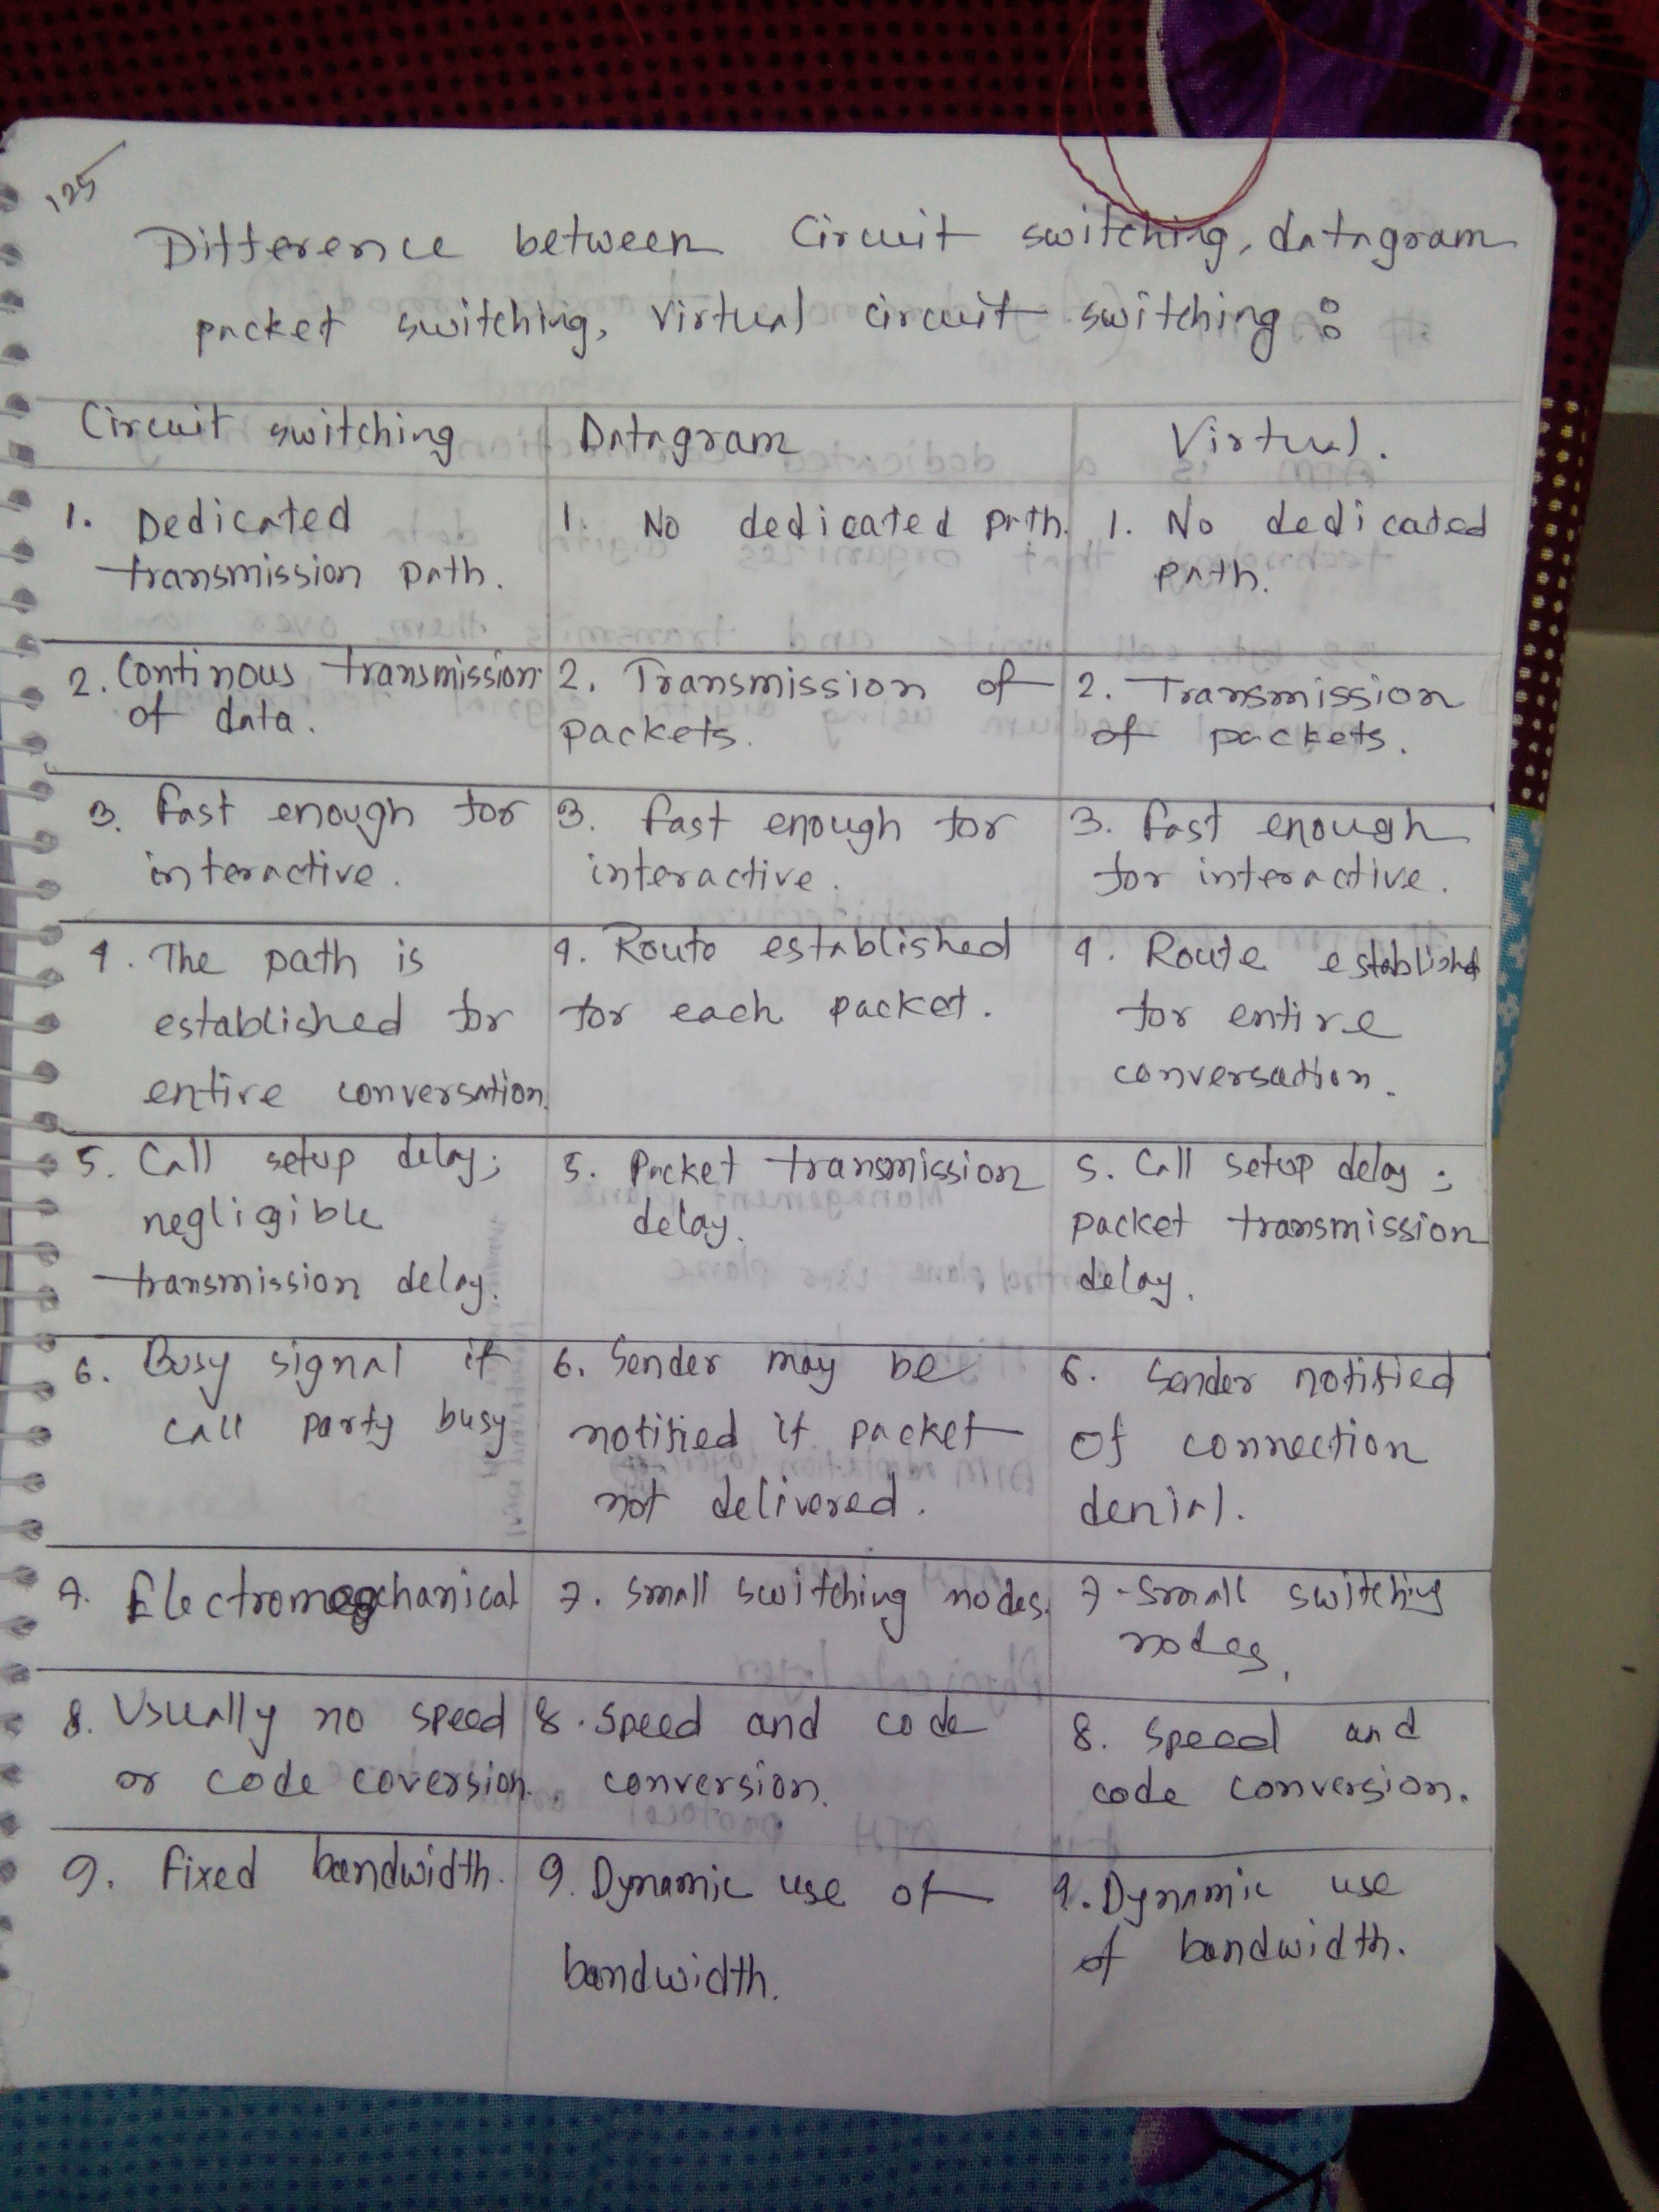 125
Difference between Circuit switching, datagram
packet switching, Virtual circuit switching :
Circuit switching
Datagram
Virtual.
1. Dedicated
transmission path.
1. No dedicated path.
1. No dedicated
path.
2. Continous transmission
of data.
2. Transmission of
packets.
2. Transmission
of packets.
3. fast enough for
interactive.
3. fast enough for
interactive.
3. fast enough
for interactive.
4. The path is
established for
entire conversation.
4. Route established
for each packet.
4. Route established
for entire
conversation.
5. Call setup delay;
negligible
transmission delay.
5. Packet transmission
delay.
5. Call setup delay ;
packet transmission
delay.
6. Busy signal if
call party busy
6. Sender may be
notified if packet
not delivered.
6. Sender notified
of connection
denial.
7. Electromechanical
7. Small switching nodes.
7. Small switching
nodes.
8. Usually no speed
or code coversion.
8. Speed and code
conversion.
8. Speed and
code conversion.
9. Fixed bandwidth.
9. Dynamic use of
bandwidth.
9. Dynamic use
of bandwidth.